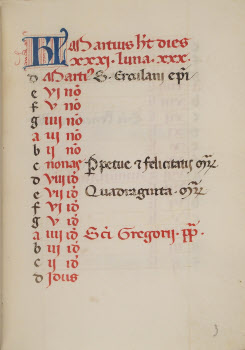 KL Martius h̄t dies
xxxi. luna. xxx.
d Marti⁹ S. Erculani ep̄i
e vi no̅
f v no̅
g iiii no̅
a iii no̅
b ii no̅
c nonas Ppetue ⁊ felicitatis m̅r̅
d viii id̅
e vii id̅ Quadraginta m̅r̅
f vi id̅
g v id̅
a iiii id̅ Sc̄i Gregorii. pp̅.
b iii id̅
c ii id̅
d Idus